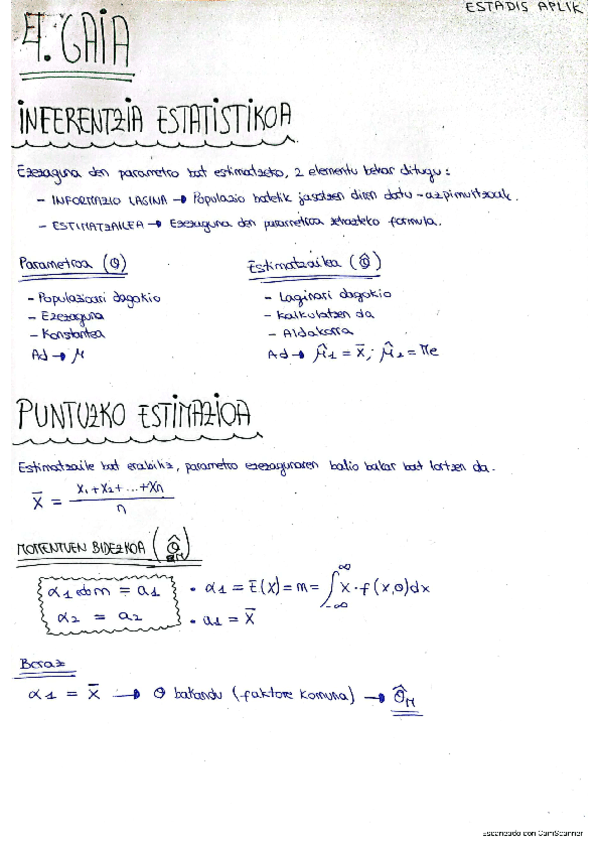 ESTADIS APLIK
4. GAIA
INFERENTZIA ESTATISTIKOA
Ezezaguna den parametro bat estimatzeko, 2 elementu behar ditugu:
- INFORMAZIO LAGINA → Populazio batetik jasotzen diren datu-azpimultzoak.
- ESTIMATZAILEA → Ezezaguna den parametroa lehazteko formula.
Parametroa (θ)
Estimatzailea (θ̂)
- Populazioari dagokio
- Ezezaguna
- Konstantea
Ad → μ
- Laginari dagokio
- Kalkulatzen da
- Aldakorra
Ad → μ̂1 = x̄; μ̂2 = Me
PUNTUZKO ESTIMAZIOA
Estimatzaile bat erabiliz, parametro ezezagunaren balio bakar bat lortzen da.
x̄ = (x1+x2+...+xn)/n
MOMENTUEN BIDEZKOA (θ̂M)
α1 edo m = a1
α2 = a2
• α1 = E(x) = m = ∫_{-∞}^{∞} x·f(x,θ)dx
• a1 = x̄
Beraz
α1 = x̄ → θ bakandu (faktore komuna) → θ̂M
Escaneado con CamScanner